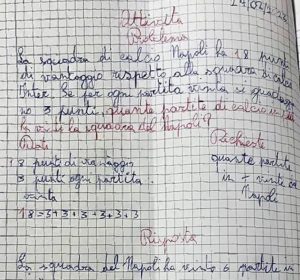 Attività
Problema
La squadra di calcio Napoli ha 18 punti
di vantaggio rispetto alla squadra di calcio
Inter. Se per ogni partita vinta si guadagna
no 3 punti, quante partite di calcio in più
ha vinto la squadra del Napoli?
Dati
Richieste
18 punti di vantaggio
quante partite
3 punti ogni partita
in + vinte
vinta
Napoli
18=3+3+3+3+3+3
Risposta
La squadra del Napoli ha vinto 6 partite in